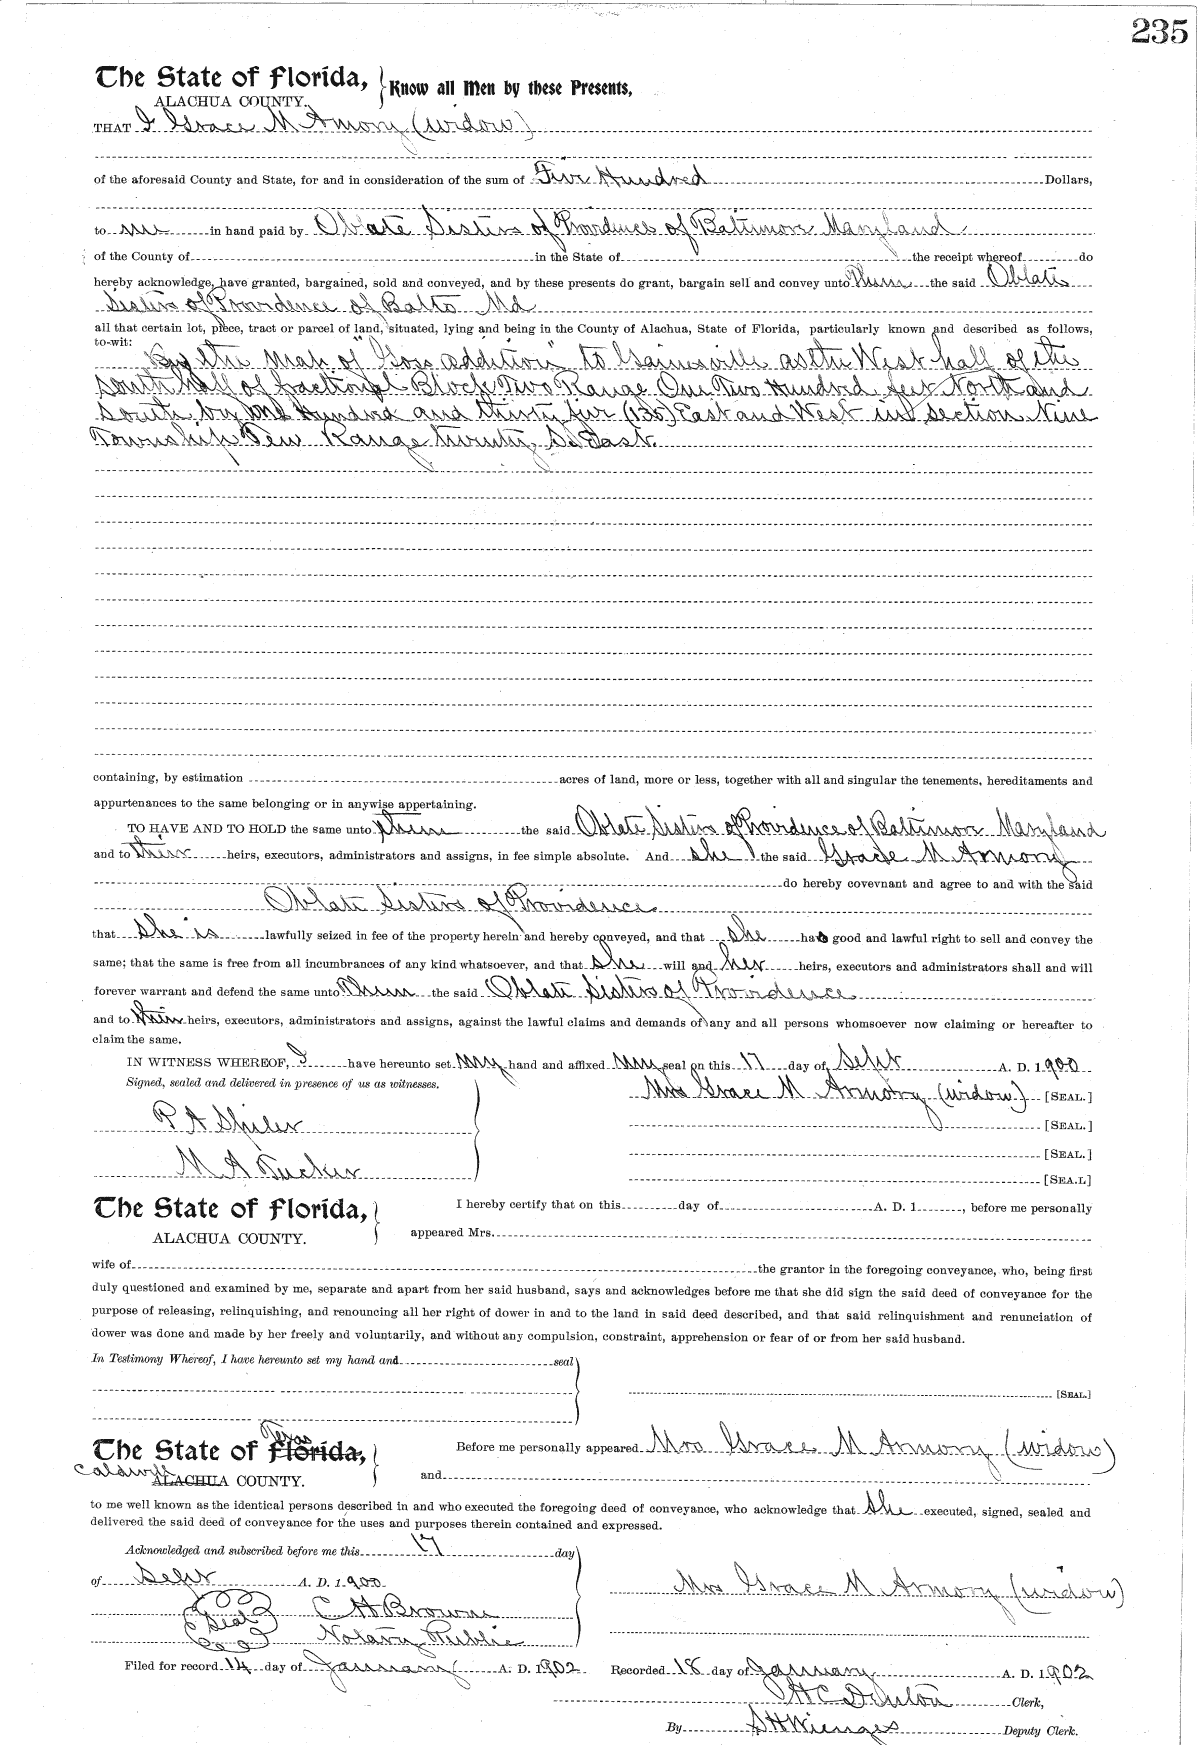 235
The State of Florida, Know all Men by these Presents,
ALACHUA COUNTY.
THAT I Grace M Armory (widow)
of the aforesaid County and State, for and in consideration of the sum of Five Hundred Dollars,
to me in hand paid by Oblate Sisters of Providence of Baltimore Maryland
of the County of in the State of the receipt whereof do
hereby acknowledge, have granted, bargained, sold and conveyed, and by these presents do grant, bargain sell and convey unto Them the said Oblate
Sisters of Providence of Balto Md
all that certain lot, piece, tract or parcel of land, situated, lying and being in the County of Alachua, State of Florida, particularly known and described as follows,
to-wit:
By the map of "Goss addition" to Gainesville as the West half of the
south half of fractional Block Two Range One Two Hundred feet North and
South by one Hundred and thirty five (135) East and West in section Nine
Township Ten Range twenty So East.
containing, by estimation acres of land, more or less, together with all and singular the tenements, hereditaments and
appurtenances to the same belonging or in anywise appertaining.
TO HAVE AND TO HOLD the same unto them the said Oblate Sisters of Providence of Baltimore Maryland
and to their heirs, executors, administrators and assigns, in fee simple absolute. And she the said Grace M Armory
do hereby covevnant and agree to and with the said
Oblate Sisters of Providence
that She is lawfully seized in fee of the property herein and hereby conveyed, and that she has good and lawful right to sell and convey the
same; that the same is free from all incumbrances of any kind whatsoever, and that she will and her heirs, executors and administrators shall and will
forever warrant and defend the same unto Them the said Oblate Sisters of Providence
and to their heirs, executors, administrators and assigns, against the lawful claims and demands of any and all persons whomsoever now claiming or hereafter to
claim the same.
IN WITNESS WHEREOF, I have hereunto set my hand and affixed my seal on this 17 day of Sept A. D. 1900
Signed, sealed and delivered in presence of us as witnesses.
Mrs Grace M Armory (widow) [SEAL.]
P A Spiler [SEAL.]
[SEAL.]
M A Tucker [SEA.L]
The State of Florida, I hereby certify that on this day of A. D. 1 , before me personally
ALACHUA COUNTY. appeared Mrs.
wife of the grantor in the foregoing conveyance, who, being first
duly questioned and examined by me, separate and apart from her said husband, says and acknowledges before me that she did sign the said deed of conveyance for the
purpose of releasing, relinquishing, and renouncing all her right of dower in and to the land in said deed described, and that said relinquishment and renunciation of
dower was done and made by her freely and voluntarily, and without any compulsion, constraint, apprehension or fear of or from her said husband.
In Testimony Whereof, I have hereunto set my hand and seal
[SEAL.]
Texas
The State of Florida, Before me personally appeared Mrs Grace M Armory (widow)
Caldwell
ALACHUA COUNTY. and
to me well known as the identical persons described in and who executed the foregoing deed of conveyance, who acknowledge that she executed, signed, sealed and
delivered the said deed of conveyance for the uses and purposes therein contained and expressed.
Acknowledged and subscribed before me this 17 day
of Sept A. D. 1900
Mrs Grace M Armory (widow)
Seal C H Browne
Notary Public
Filed for record 14 day of January A. D. 1902 Recorded 18 day of January A. D. 1902
H C Denton Clerk,
By S H Wienges Deputy Clerk.